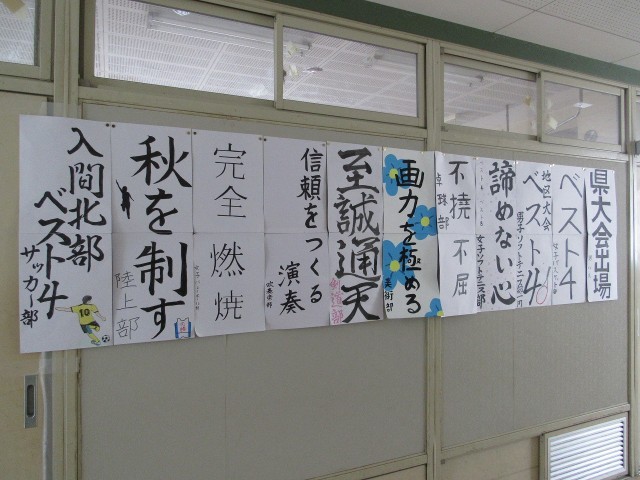 県大会出場
ベスト4
地区大会
ベスト4
男子ソフトテニス部一同
諦めない心
女子ソフトテニス部
不撓不屈
卓球部
画力を極める
美術部
至誠通天
剣道部
信頼をつくる
演奏
吹奏楽部
完全燃焼
秋を制す
陸上部
入間北部
ベスト4
サッカー部
10